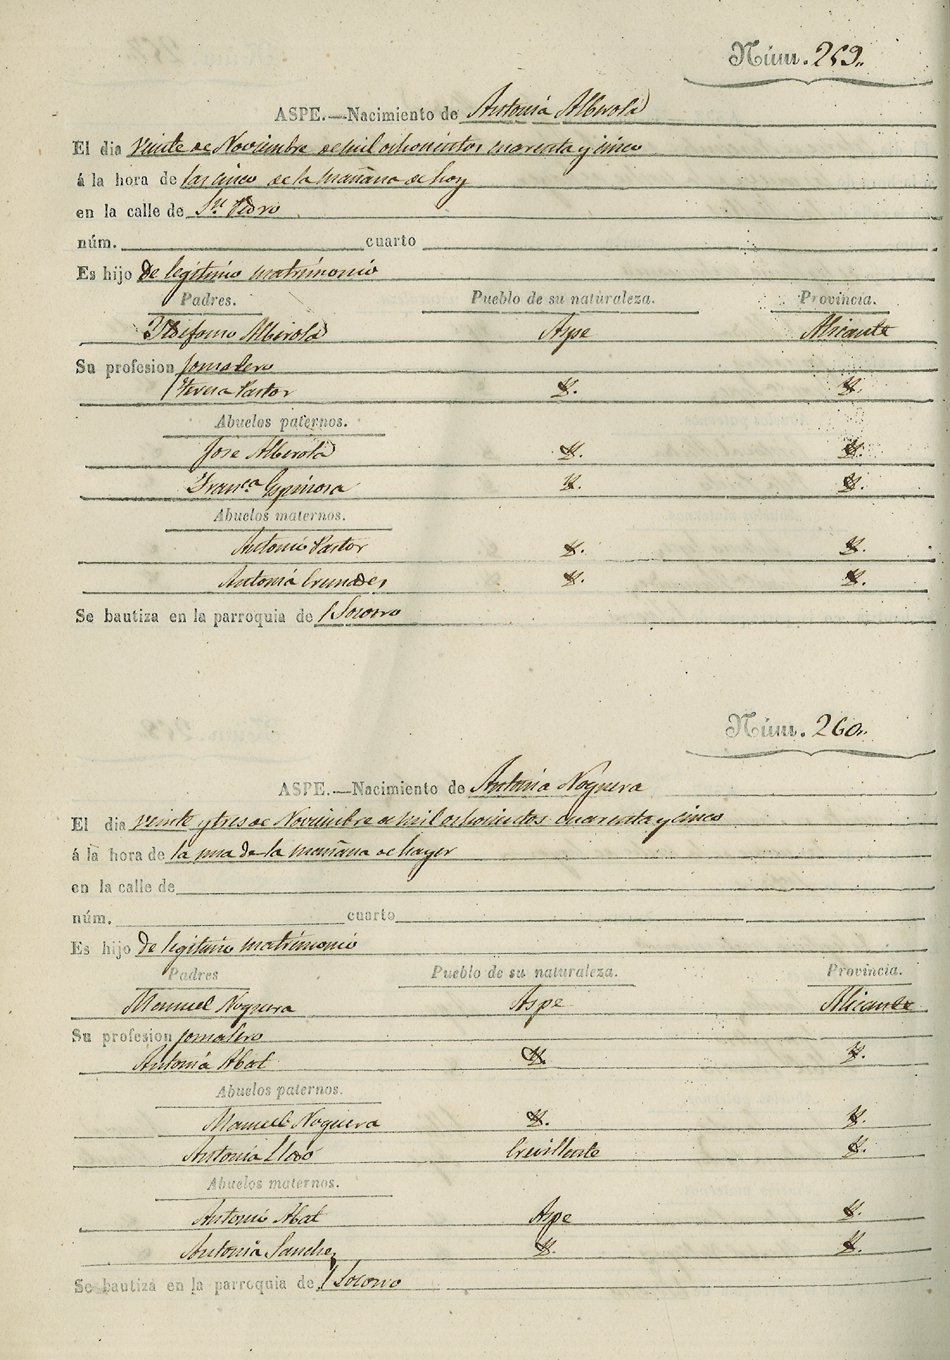 Núm. 259.
ASPE.—Nacimiento de Antonia Alberola
El dia veinte de Noviembre de mil ochocientos cuarenta y cinco
á la hora de las cinco de la mañana de hoy
en la calle de Sn. Pedro
núm. cuarto
Es hijo de legitimo matrimonio
Padres. Pueblo de su naturaleza. Provincia.
Ildefonso Alberola Aspe Alicante
Su profesion jornalero
Teresa Pastor Y. Y.
Abuelos paternos.
Jose Alberola Y. Y.
Franca. Espinosa Y. Y.
Abuelos maternos.
Antonio Pastor Y. Y.
Antonia Y. Y.
Se bautiza en la parroquia de l Socorro
Núm. 260.
ASPE.—Nacimiento de Antonia Noguera
El dia veinte y tres de Noviembre de mil ochocientos cuarenta y cinco
á la hora de la una de la mañana de hayer
en la calle de
núm. cuarto
Es hijo de legitimo matrimonio
Padres Pueblo de su naturaleza. Provincia.
Manuel Noguera Aspe Alicante
Su profesion jornalero
Antonia Abat Y. Y.
Abuelos paternos.
Manuel Noguera Y. Y.
Antonia Crevillente Y.
Abuelos maternos.
Antonio Abat Aspe Y.
Antonia Sanchez Y. Y.
Se bautiza en la parroquia de l Socorro